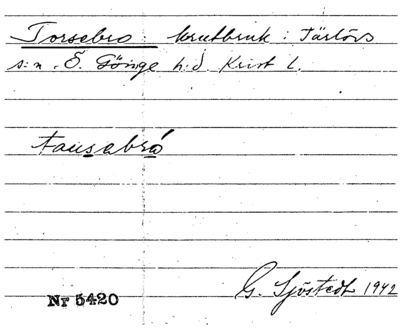 Torsebro: krutbruk: Färlövs
s:n. Ö. Göinge h:d. Krist L.
tausabró
G. Sjöstedt 1942
Nr 5420